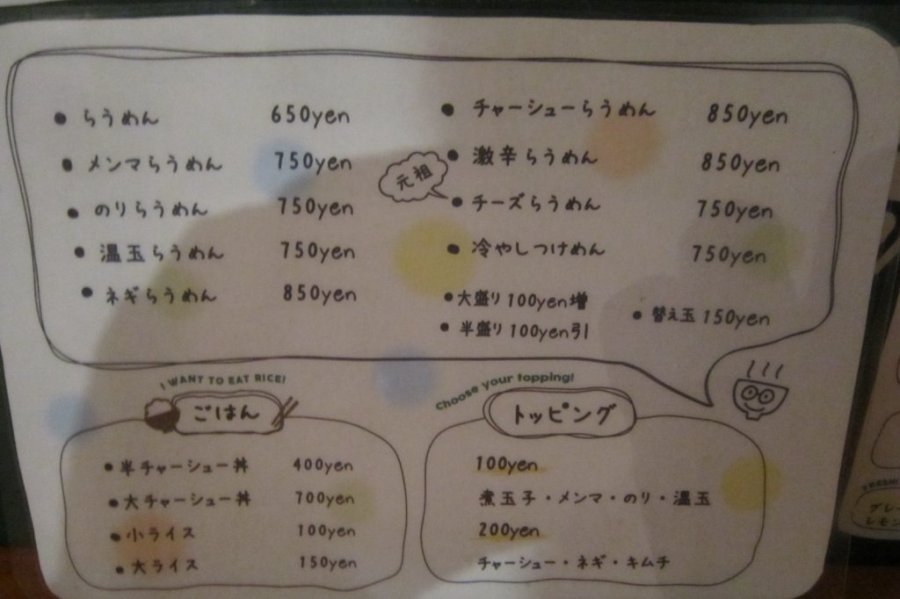 らうめん 650yen
メンマらうめん 750yen
のりらうめん 750yen
温玉らうめん 750yen
ネギらうめん 850yen
チャーシューらうめん 850yen
激辛らうめん 850yen
元祖
チーズらうめん 750yen
冷やしつけめん 750yen
大盛り100yen増
半盛り100yen引
替え玉150yen
I WANT TO EAT RICE!
ごはん
半チャーシュー丼 400yen
大チャーシュー丼 700yen
小ライス 100yen
大ライス 150yen
Choose your topping!
トッピング
100yen
煮玉子・メンマ・のり・温玉
200yen
チャーシュー・ネギ・キムチ